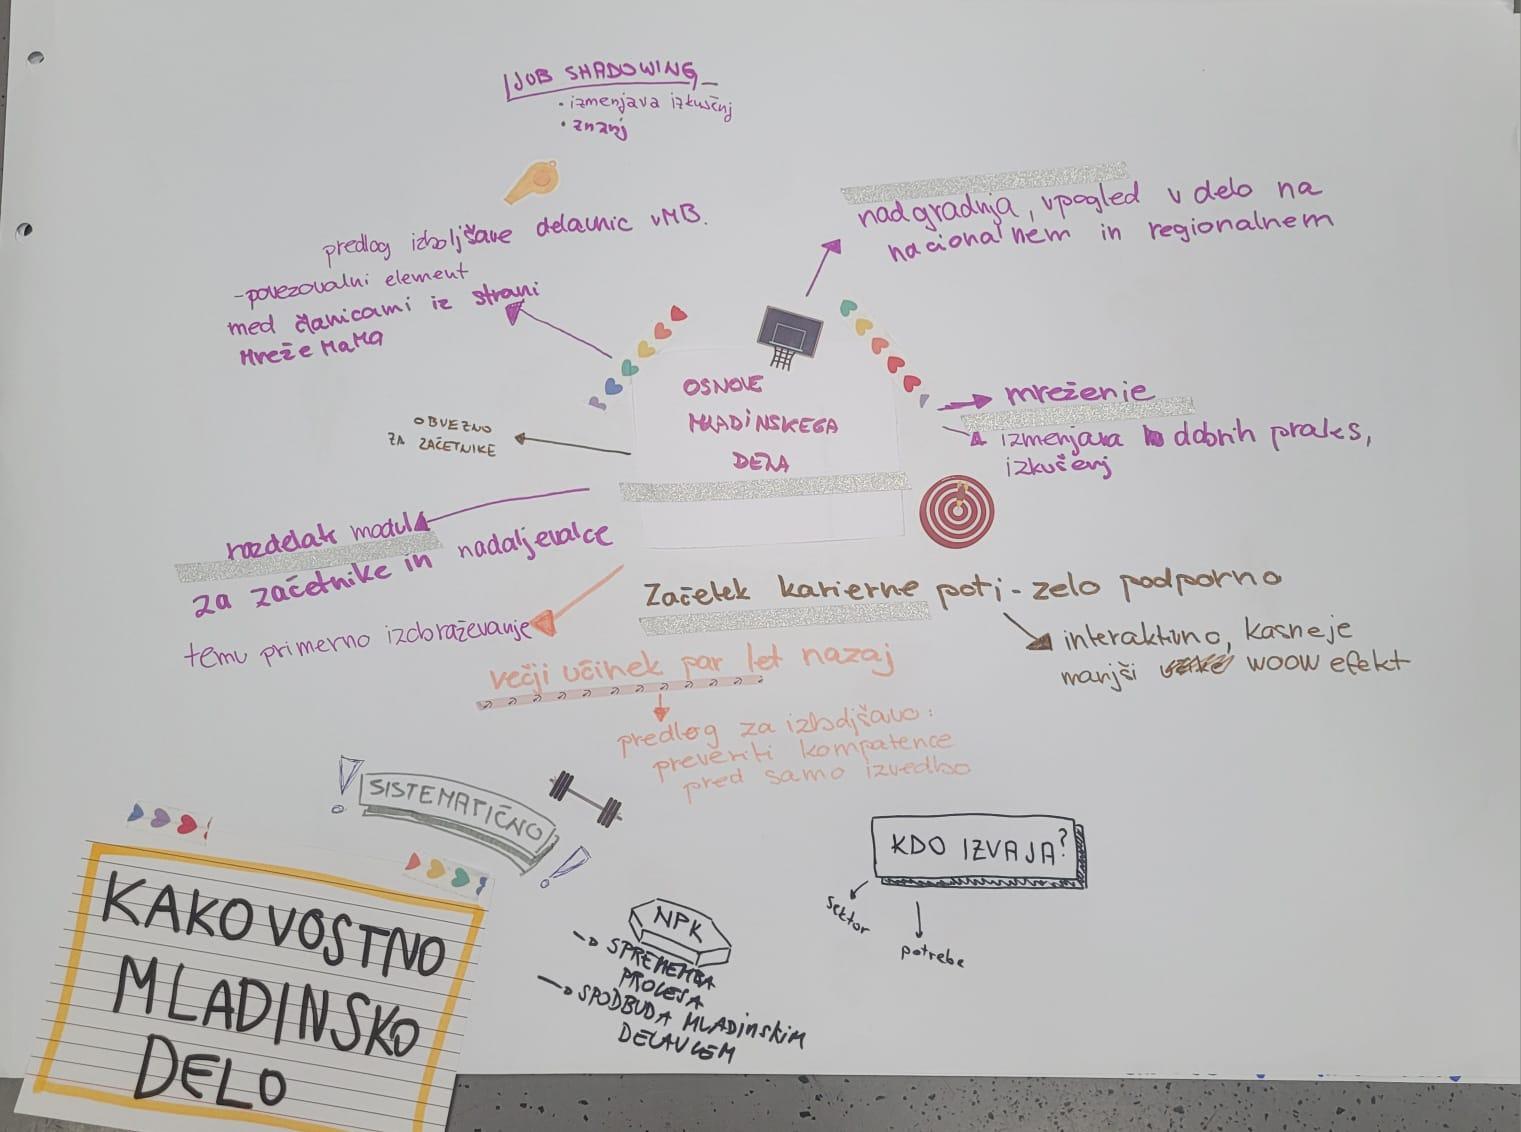 JOB SHADOWING
• izmenjava izkušnj
• znanj
predlog izboljšave delavnic v MB.
- povezovalni element
med članicami iz strani
Mreže MaMa
nadgradnja, vpogled v delo na
nacionalnem in regionalnem
OSNOVE
MLADINSKEGA
DELA
OBVEZNO
ZA ZAČETNIKE
mreženje
izmenjava dobrih praks,
izkušenj
razdelak modula
za začetnike in nadaljevalce
temu primerno izobraževanje
Začetek karierne poti - zelo podporno
interaktivno, kasneje
manjši WOOW efekt
večji učinek par let nazaj
predlog za izboljšavo:
preveriti kompatence
pred samo izvedbo
! SISTEMATIČNO !
KDO IZVAJA?
sektor
potrebe
NPK
→ SPREMEMBA
PROCESA
→ SPODBUDA MLADINSKIM
DELAVCEM
KAKOVOSTNO
MLADINSKO
DELO